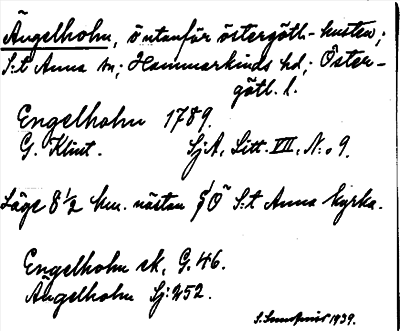 Ängelholm, ö utanför östergötl-kusten;
S:t Anna sn; Hammarkinds hd; Öster-
götl. l.
Engelholm 1789.
G. Klint. SjA, Litt. VII, N:o 9.
Läge 8 1/2 km. nästan ÖsÖ S:t Anna kyrka.
Engelholm ek, G. 46.
Ängelholm Sj: 252.
1939.